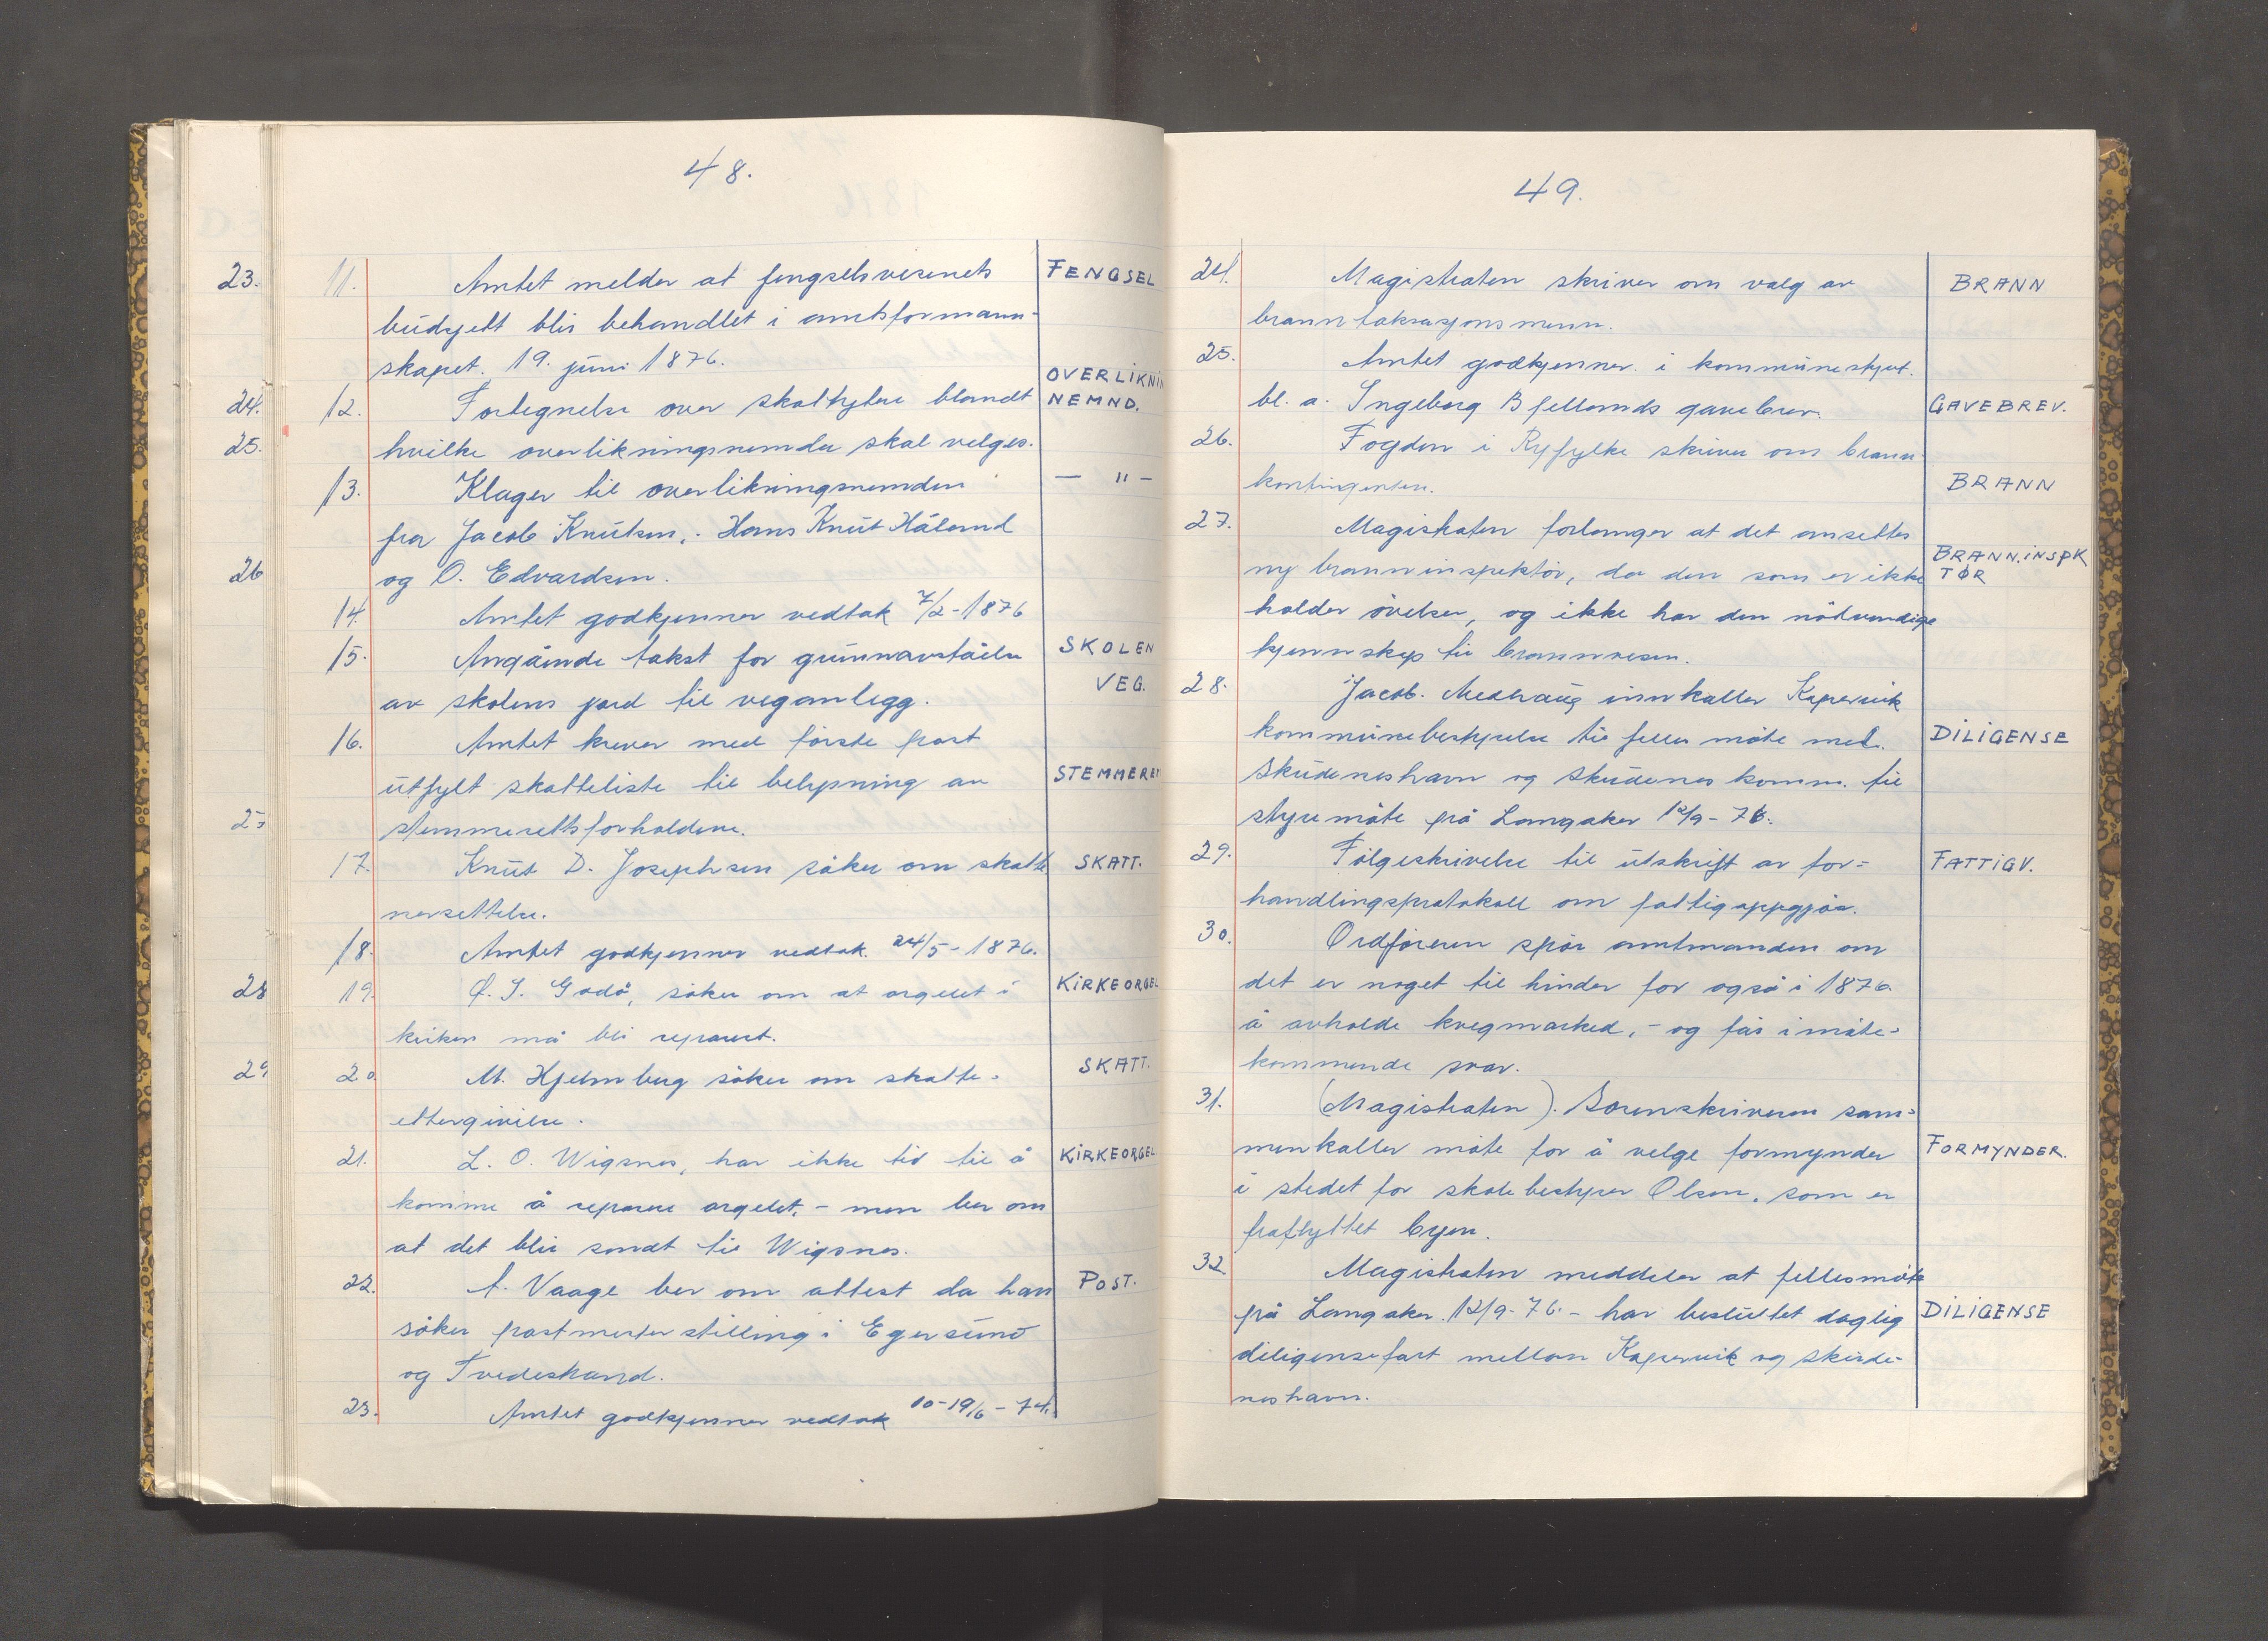 48.
23. 11. Amtet melder at fengselsvesenets FENGSEL
budsjett blir behandlet i amtsformann-
skapet. 19. juni 1876.
24. 12. Fortegnelse over skattytere blandt OVERLIKNIN
NEMND.
25. hvilke overlikningsnemda skal velges.
13. Klager til overlikningsnemden — " —
fra Jacob Knutsen, - Hans Knut Håland
26 og O. Edvardsen.
14. Amtet godkjenner vedtak 7/2-1876
15. Angående takst for grunnavståelse SKOLEN
av skolens jord til veganlegg. VEG.
16. Amtet krever med første post
utfylt skatteliste til belysning av STEMMERET
27 stemmerettsforholdene.
17. Knut D. Josephsen søker om skatte SKATT.
nersettelse.
18. Amtet godkjenner vedtak. 24/5-1876.
28 19. O. I. Godø, søker om at orgelet i KIRKEORGEL
kirken må bli reparert.
29 20. M. Hjelmberg søker om skatte- SKATT.
ettergivelse.
21. L. O. Wigsnes, har ikke tid til å KIRKEORGEL
komme å reparere orgelet, - men ber om
at det blir sendt til Wigsnes.
22. A. Vaage ber om attest da han POST.
søker postmesterstilling i Egersund
og Tvedestrand.
23. Amtet godkjenner vedtak 10-19/6-74.
49.
24. Magistraten skriver om valg av BRANN
branntaksasjonsmenn.
25. Amtet godkjenner i kommunestyret.
bl. a. Ingeborg Bjellands gavebrev. GAVEBREV.
26. Fogden i Ryfylke skriver om brann-
kontingenten. BRANN
27. Magistraten forlanger at det ansettes
ny branninspektør, da den som er ikke BRANN.INSPK
TØR
holder øvelser, og ikke har den nødvendige
kjennskap til brannvesen.
28. Jacob. Medhaug innkaller Kopervik
kommunebestyrelse til felles møte med. DILIGENSE
Skudeneshavn og Skudenes komm. til
styremøte på Langaker 12/9-76.
29. Følgeskrivelse til utskrift av for- FATTIGV.
handlingsprotokoll om fattigoppgjør.
30. Ordføreren spør amtmanden om
det er noget til hinder for også i 1876.
å avholde kvegmarked, - og får imøte-
kommende svar.
31. (Magistraten). Sorenskriveren sam-
menkaller møte for å velge formynder FORMYNDER.
i stedet for skolebestyrer Olsen, som er
fraflyttet byen.
32. Magistraten meddeler at fellesmøte
på Langaker. 12/9-76. - har besluttet daglig DILIGENSE
diligensefart mellom Kopervik og Skude-
neshavn.